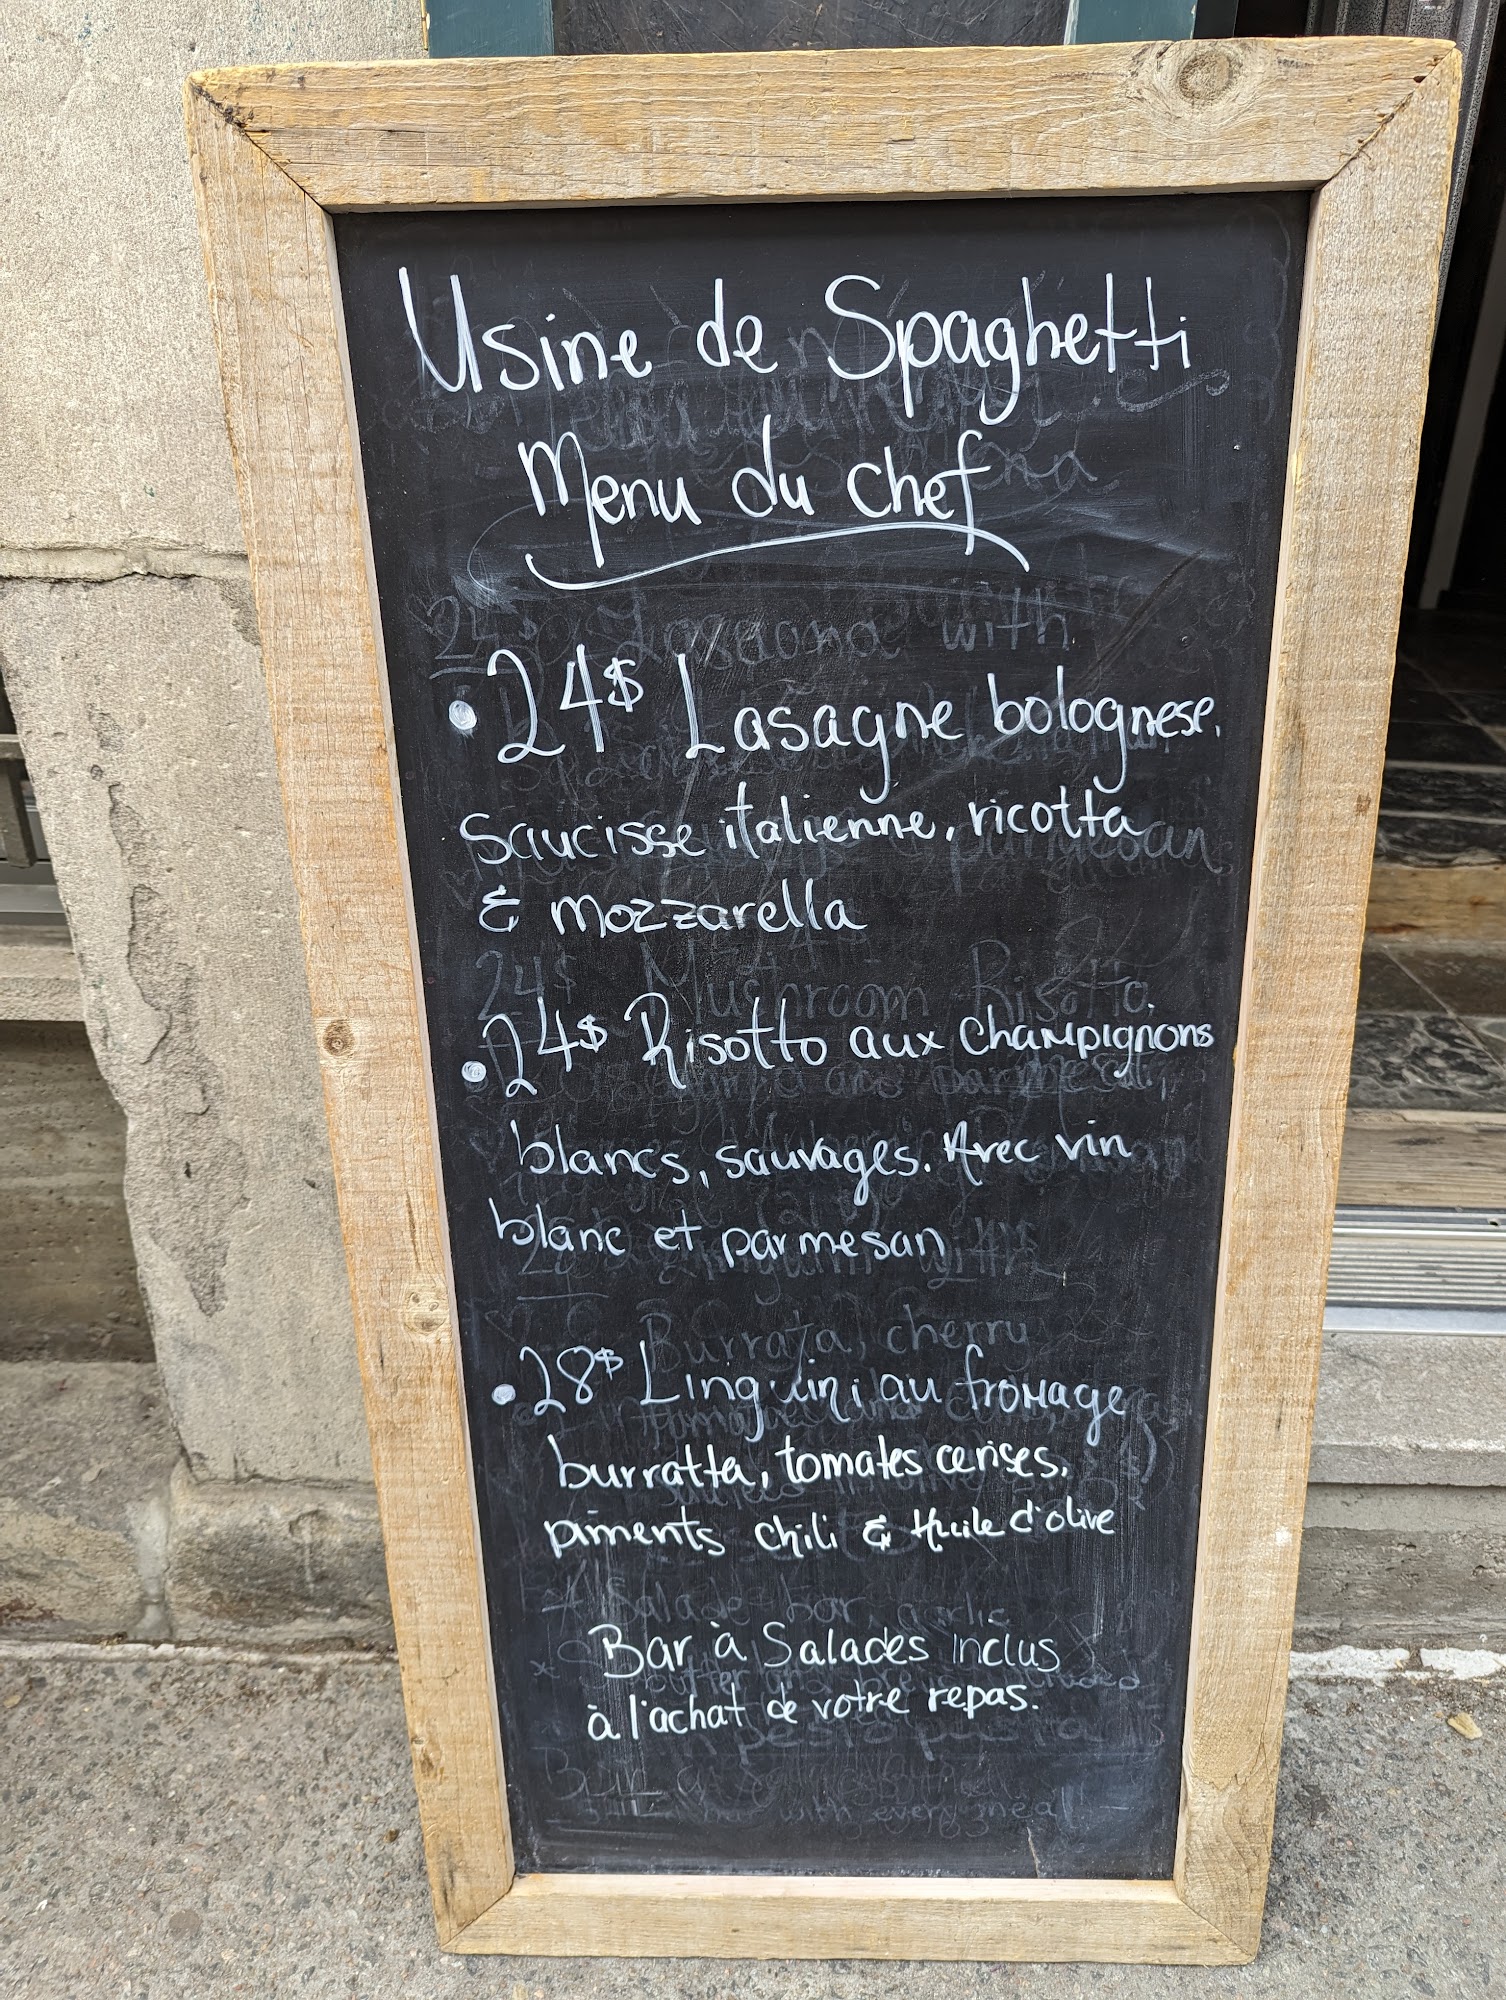 Usine de Spaghetti
Menu du chef
• 24$ Lasagne bolognese,
saucisse italienne, ricotta
& mozzarella
• 24$ Risotto aux champignons
blancs, sauvages. Avec vin
blanc et parmesan
• 28$ Linguini au fromage
burratta, tomates cerises,
piments chili & Huile d'olive
Bar à Salades inclus
à l'achat de votre repas.